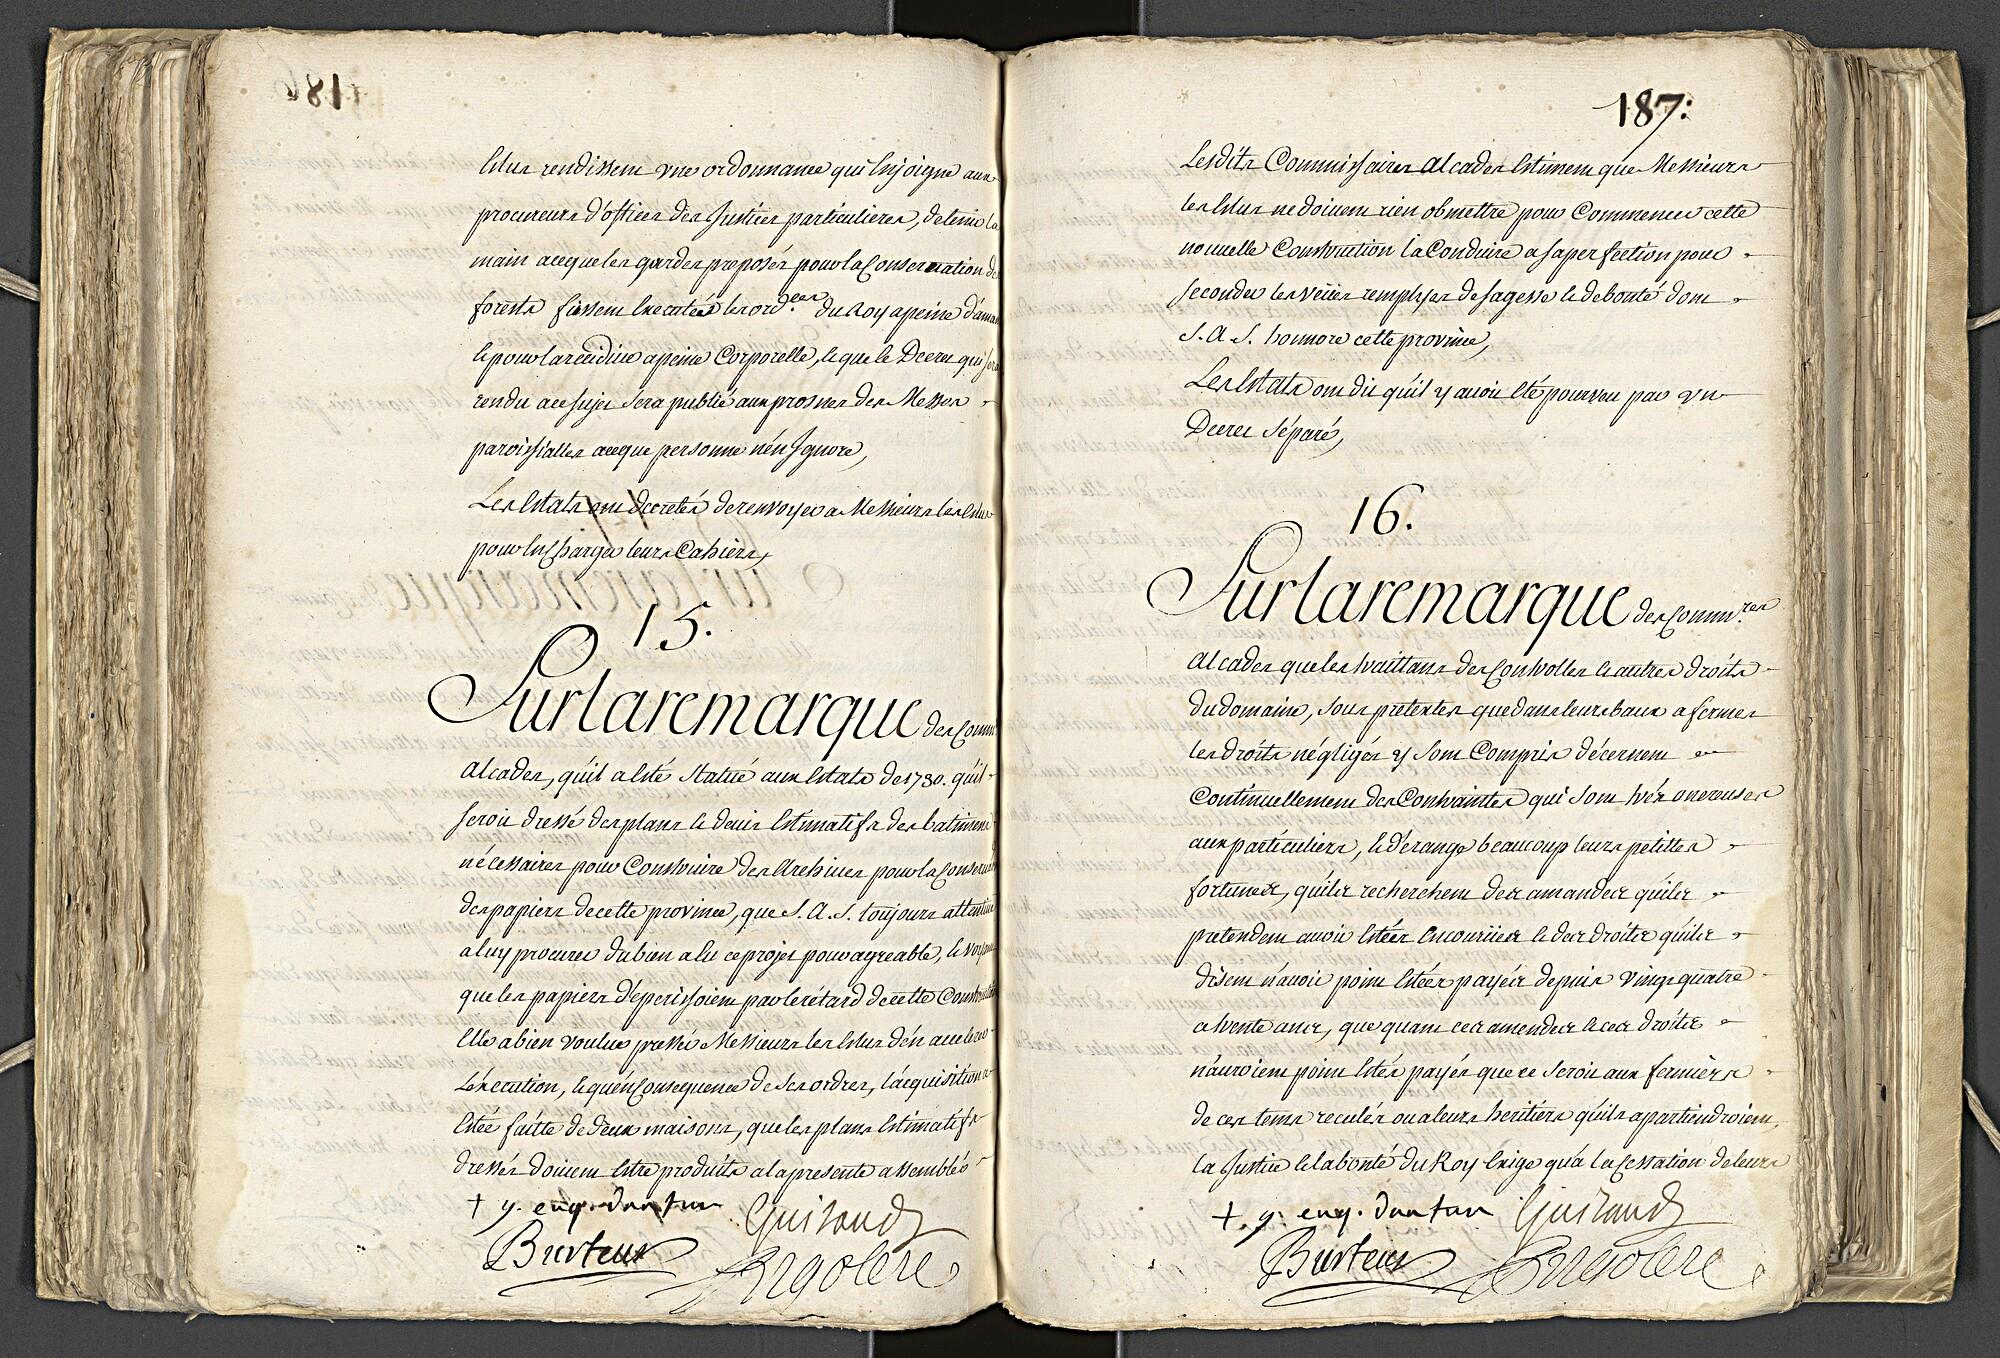 Elus rendissent une ordonnance qui Enjoigne aux
procureurs d'offices des Justices particulieres, de tenir la
main aceque les gardes preposés pour la Conservation de
forests fissent Executer les ord.ces du Roy a peine d'amande
Et pour la recidive a peine Corporelle, Et que le Decret qui sera
rendu ace sujet sera publié aux prosnes des Messes
paroissialles aceque personne n'en Ignore,
Les Estats ont decretés de renvoyer a Messieurs les Elus
pour En Charger leurs Cahiers,
15.
Sur la remarque des Comm
Alcades, qu'il a Esté statué aux Estats de 1730. qu'il
seroit dressé des plans Et devis Estimatifs des batimens
nécessaires pour Construire des Archives pour la Conserva
des papiers de cette province, que S. A. S. toujours attentive
a luy procurer du bien a Eu ce projet pour agreable, Et voyant
que les papiers déperissoient par le retard de cette Construction
Elle a bien voulue presser Messieurs les Elus d'en accelerer
L'éxecution, Et qu'en Consequence de ses ordres, l'acquisition a
Esté faitte de deux maisons, que les plans Estimatifs
dressés doivent Estre produits a la presente assemblée
+ y. evêq. d'autun Guiraud
Burteur Argolere
187:
Lesdits Commissaires Alcades Estiment que Messieurs
les Elus ne doivent rien obmettre pour Commencer cette
nouvelle Construction la Conduire a sa perfection pour
seconder les veües remplyes de sagesse Et de bonté dont
S. A. S. honnore cette province,
Les Estats ont dit qu'il y avoit Eté pourveu par un
Decret séparé,
16.
Sur la remarque des Comm.res
Alcades que les traittans des Controlles Et autres droits
du domaine, sous pretextes que dans leurs baux a fermes
les droits négligés y sont Compris décernent
Continuellement des Contraintes qui sont très onereuses
aux particuliers, Et dérange beaucoup leurs petittes
fortunes, qu'ils recherchent des amandes qu'ils
pretendent avoir Estées Encourües Et des droits qu'ils
disent n'avoir point Estées payés depuis vingt quatre
a trente ans, que quant ces amendes Et ces droits
n'auroient point Estés payés que ce seroit aux fermiers
de ces tems reculés ou a leurs heritiers qu'ils apartiendroient,
la Justice Et la bonté du Roy Exige qu'a la Cessation de leurs
+ y. evêq. d'autun Guiraud
Burteur Argolere